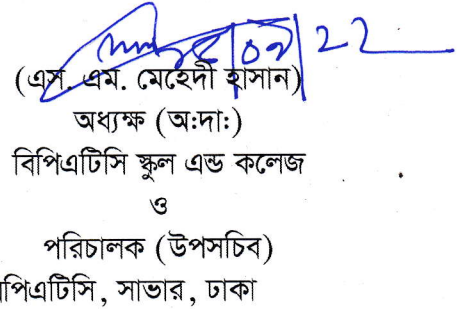 (এস. এম. মেহেদী হাসান)
অধ্যক্ষ (অ:দা:)
বিপিএটিসি স্কুল এন্ড কলেজ
ও
পরিচালক (উপসচিব)
পিএটিসি, সাভার, ঢাকা